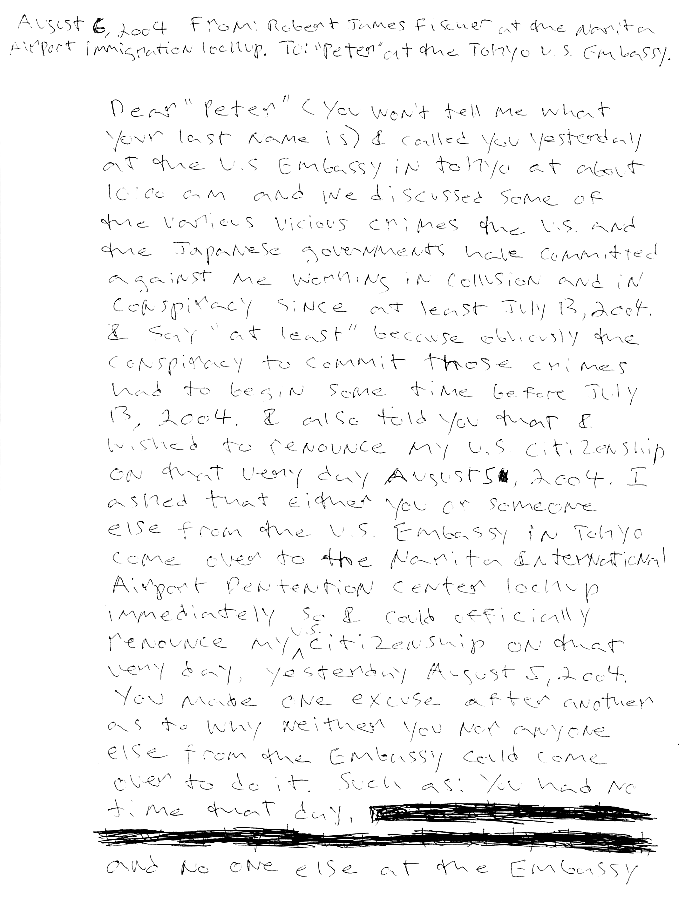 August 6, 2004 From: Robert James Fischer at the Narita
Airport immigration lockup. To: "Peter" at the Tokyo U.S. Embassy.
Dear "Peter" (You won't tell me what
your last name is) I called you yesterday
at the U.S Embassy in tokyo at about
10:00 am and we discussed some of
the various vicious crimes the U.S. and
the Japanese governments have committed
against me working in collusion and in
conspiracy since at least July 13, 2004.
I say "at least" because obviously the
conspiracy to commit those crimes
had to begin some time before July
13, 2004. I also told you that I
wished to renounce my U.S citizenship
on that very day August 5, 2004. I
asked that either you or someone
else from the U.S. Embassy in Tokyo
come over to the Narita International
Airport Dentention Center lockup
immediately so I could officially
renounce my U.S. citizenship on that
very day, yesterday August 5, 2004.
You made one excuse after another
as to why neither you nor anyone
else from the Embassy could come
over to do it. Such as: You had no
time that day,
and no one else at the Embassy